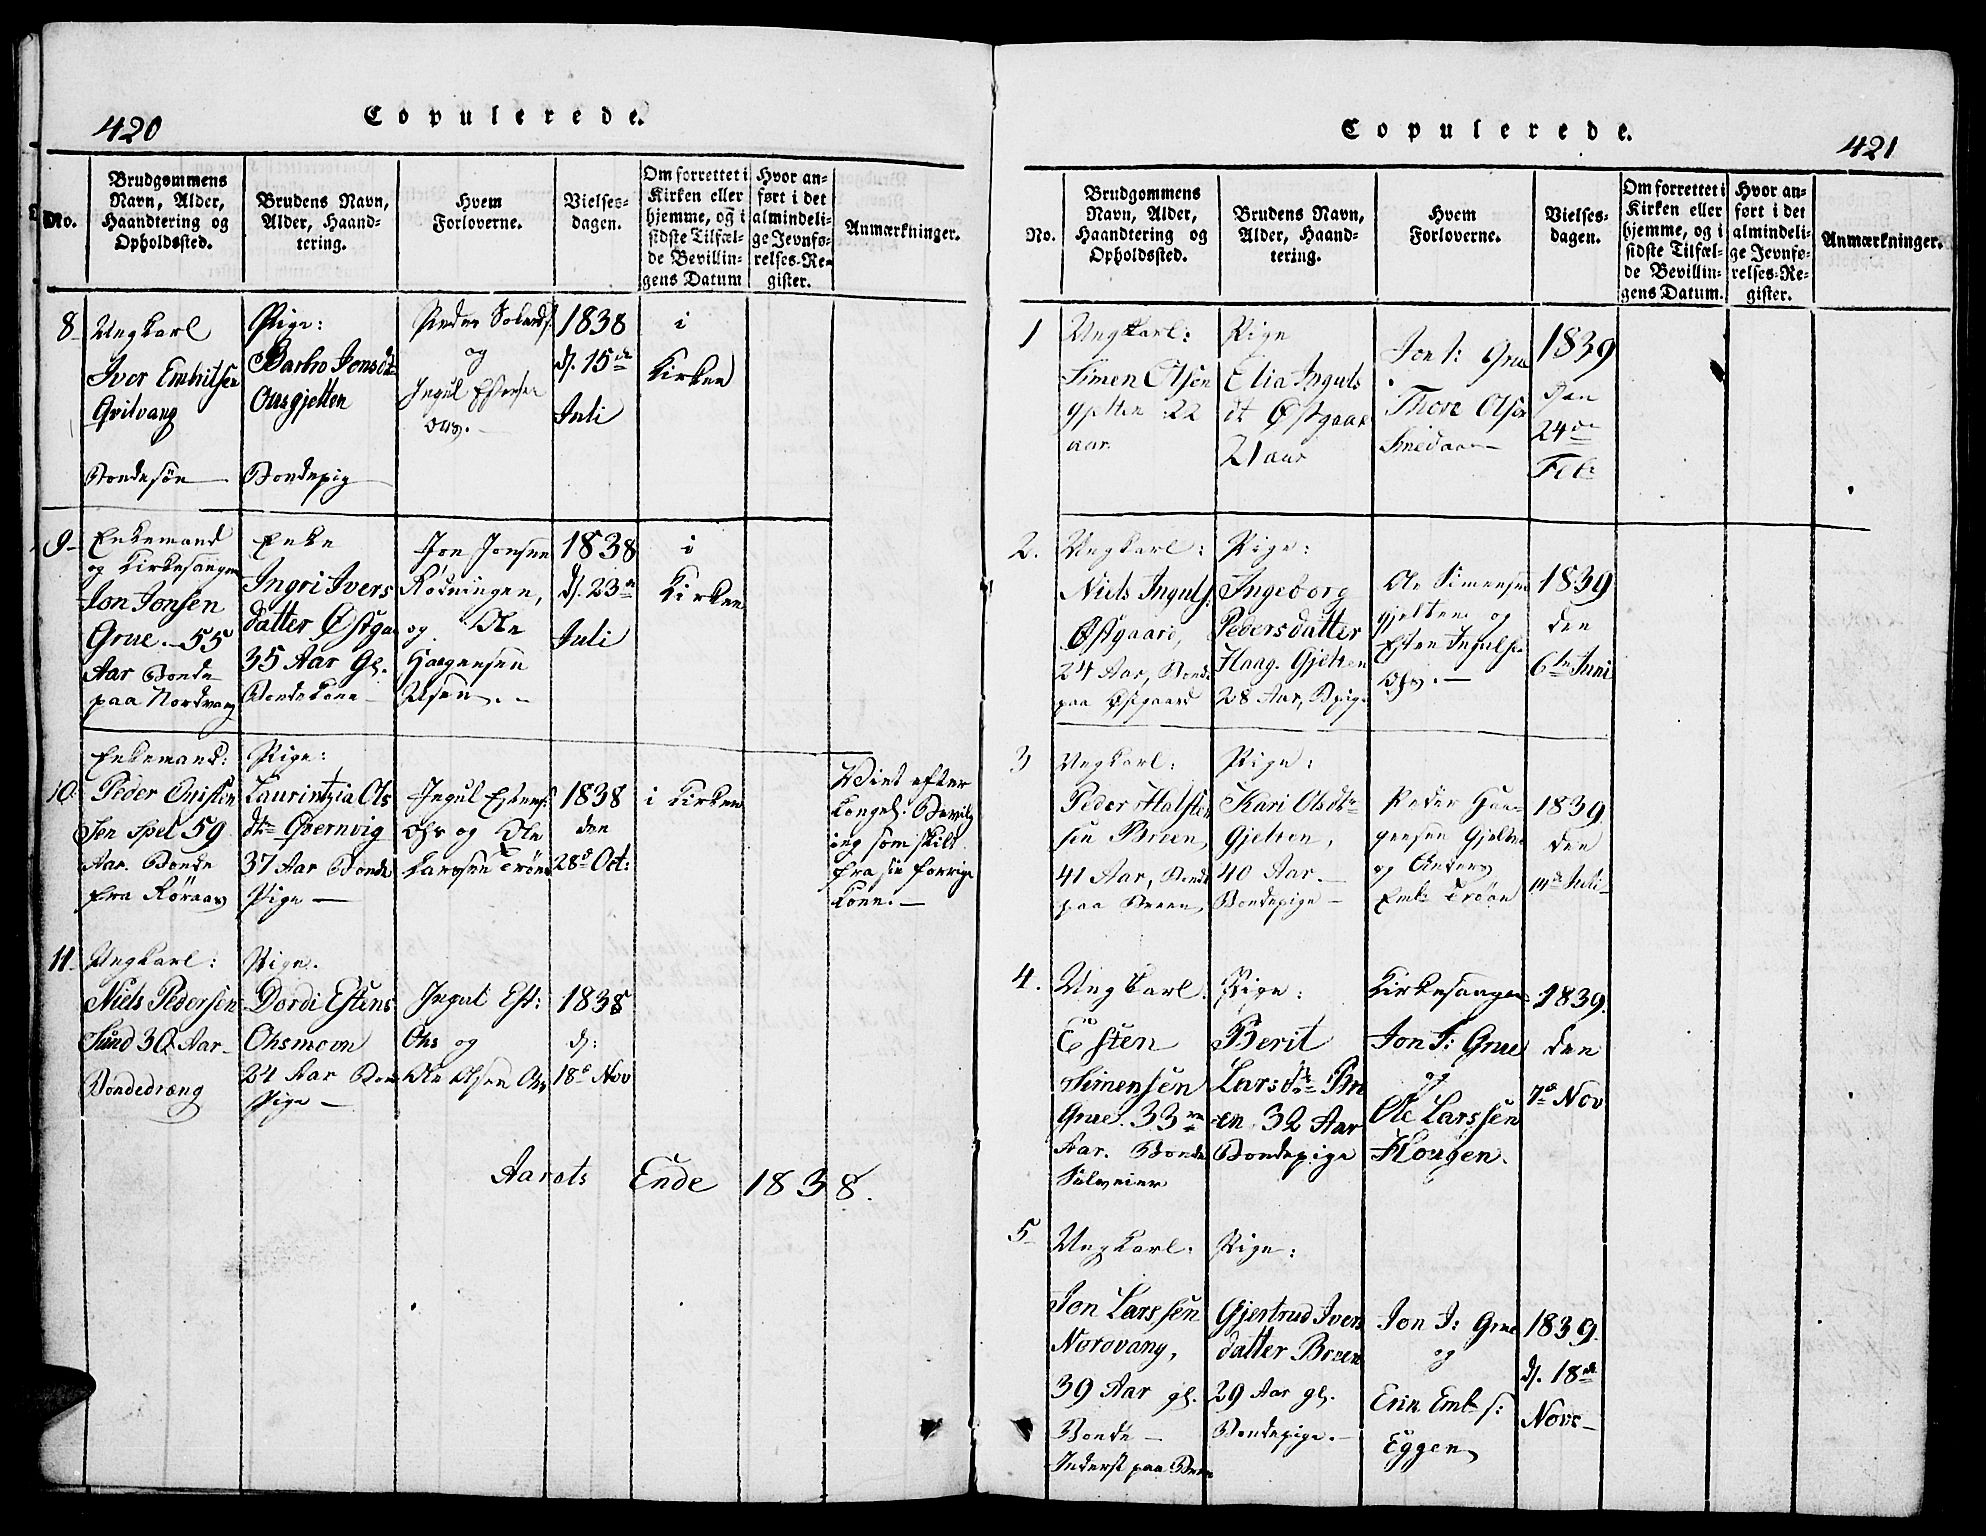 420
Copulerede.
No.
Brudgommens
Navn, Alder,
Haandtering og
Opholdssted.
Brudens Navn,
Alder, Haand-
tering.
Hvem
Forloverne.
Vielses-
dagen.
Om forrettet i
Kirken eller
hjemme, og i
sidste Tilfæl-
de Bevillin-
gens Datum
Hvor an-
ført i det
almindeli-
ge Jevnfø-
relses-Re-
gister.
Anmærkninger.
8
Ungkarl
Ivor Embritsen
Qvilvang
Bondesøn
Pige:
Barbro Jonsdt
Aasgjelten
Bondepig
Peder
og
Ingul Estensen
1838
d. 15de
Juli
i
Kirken
9
Enkemand
og Kirkesanger
Jon Jonsen
Grue. 55
Aar Bonde
paa Nordvang
Enke
Ingri Ivers
datter Østga
35 Aar Gl.
Bondekone
Jon Jonsen
Rødningen,
og Ole
Haagensen
1838
d. 23de
Juli
i
Kirken
10
Enkemand:
Peder Onisten
sen Spel 59
Aar. Bonde
fra Røraas
Pige:
Laurintzia Ols
dtr Qvernvig
37 Aar Bonde
Pige
Ingul Estens:
Ohs og Ole
Larssen Trøen
1838
den
28d Oct:
i Kirken
Viet efter
kongel. Bevilg
ing som skilt
fra sin forrige
Kone.
11
Ungkarl:
Niels Pedersen
Sund 30 Aar
Bondedræng
Pige.
Dordi Estens
Ohsmoen
24 Aar Bon
Pige
Ingul Est:
Ohs og
Ole Olsen Ohs
1838
d:
18d Nov
Aarets Ende 1838.
421
Copulerede.
No.
Brudgommens
Navn, Alder,
Haandtering og
Opholdssted.
Brudens Navn,
Alder, Haand-
tering.
Hvem
Forloverne.
Vielses-
dagen.
Om forrettet i
Kirken eller
hjemme, og i
sidste Tilfæl-
de Bevillin-
gens Datum.
Hvor an-
ført i det
almindeli-
ge Jevnfø-
relses-Re-
gister.
Anmærkninger.
1
Ungkarl:
Simen Olsen
Gjelten 22
aar
Pige
Elia Inguls
dt Østgaar
21 aar
Jon J: Grue
Thore Olsen
1839
Den
24de
Feb:
2.
Ungkarl:
Niels Inguls.
Østgaard,
24 Aar, Bonde
paa Østgaard
Pige:
Ingeborg
Pedersdatter
Haag. Gjelten
28 Aar, Bpige
Ole Simensen
Gjelten og
Esten Ingulsen
Ohs.
1839
den
6te Juni
3
Ungkarl:
Peder Halsten
sen Breen,
41 Aar, Bonde
paa Breen,
Pige:
Kari Olsdtr
Gjelten,
40 Aar.
Bondepige
Peder Haa-
gensen Gjelten
og Anders
Emb: Trøen
1839
den
14de Juli
4.
Ungkarl.
Esten
Simensen
Grue. 33
Aar. Bonde
Selveier
Pige:
Berit
Larsdtr Bre
en 32 Aar
Bondepige
Kirkesanger
Jon J: Grue
og
Ole Larssen
Hougen.
1839.
den
7d Nov
5
Ungkarl.
Jon Larssen
Norovang,
39 Aar gl.
Bonde
Inderst paa Breen
Pige:
Gjertrud Ivers
datter Breen
29 Aar gl.
Bondepige.
Jon J: Grue
og
Erik Emb s:
Eggen
1839.
d. 18de
Novr